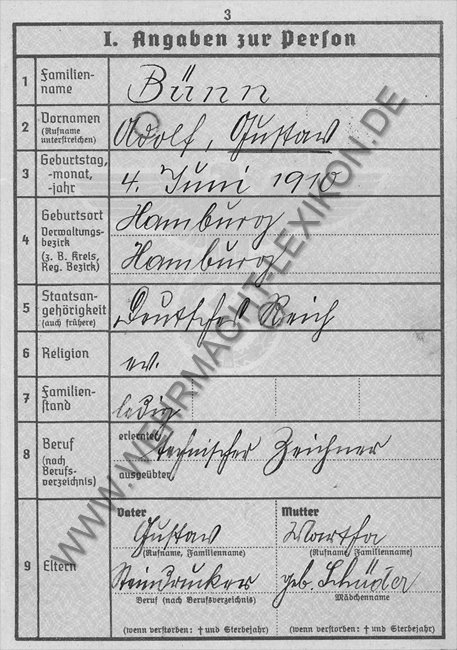 3
I. Angaben zur Person
1 Familien-
name
Bünn
2 Vornamen
(Rufname
unterstreichen)
Adolf, Gustav
3 Geburtstag,
-monat,
-jahr
4. Juni 1910
4 Geburtsort
Verwaltungs-
bezirk
(z. B. Kreis,
Reg. Bezirk)
Hamburg
Hamburg
5 Staatsan-
gehörigkeit
(auch frühere)
Deutsches Reich
6 Religion
ev.
7 Familien-
stand
ledig
8 Beruf
(nach
Berufs-
verzeichnis)
erlernter
technischer Zeichner
ausgeübter
9 Eltern
Vater
Gustav
(Rufname, Familienname)
Steindrucker
Beruf (nach Berufsverzeichnis)
(wenn verstorben: † und Sterbejahr)
Mutter
Martha
(Rufname, Familienname)
geb. Schüder
Mädchenname
(wenn verstorben: † und Sterbejahr)
WWW.WEHRMACHT-LEXIKON.DE